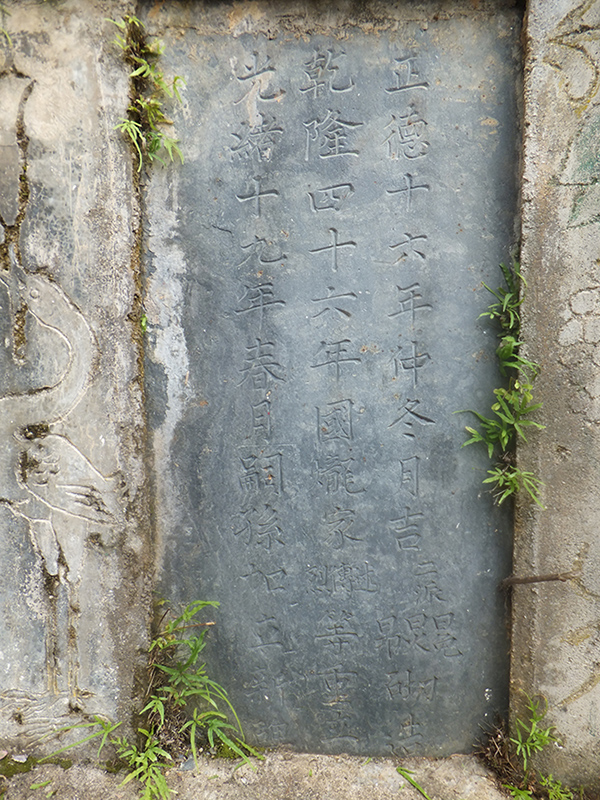 正德十六年仲冬月吉
乾隆四十六年國龍家重
光緒十九年春月嗣孫如立